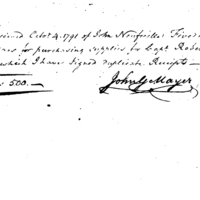 eived Octo 4. 1791 of John Neufville Five
for purchasing supplies for Capt Robe
which I have signed duplicate Receipts —
500. —
John G Mayer